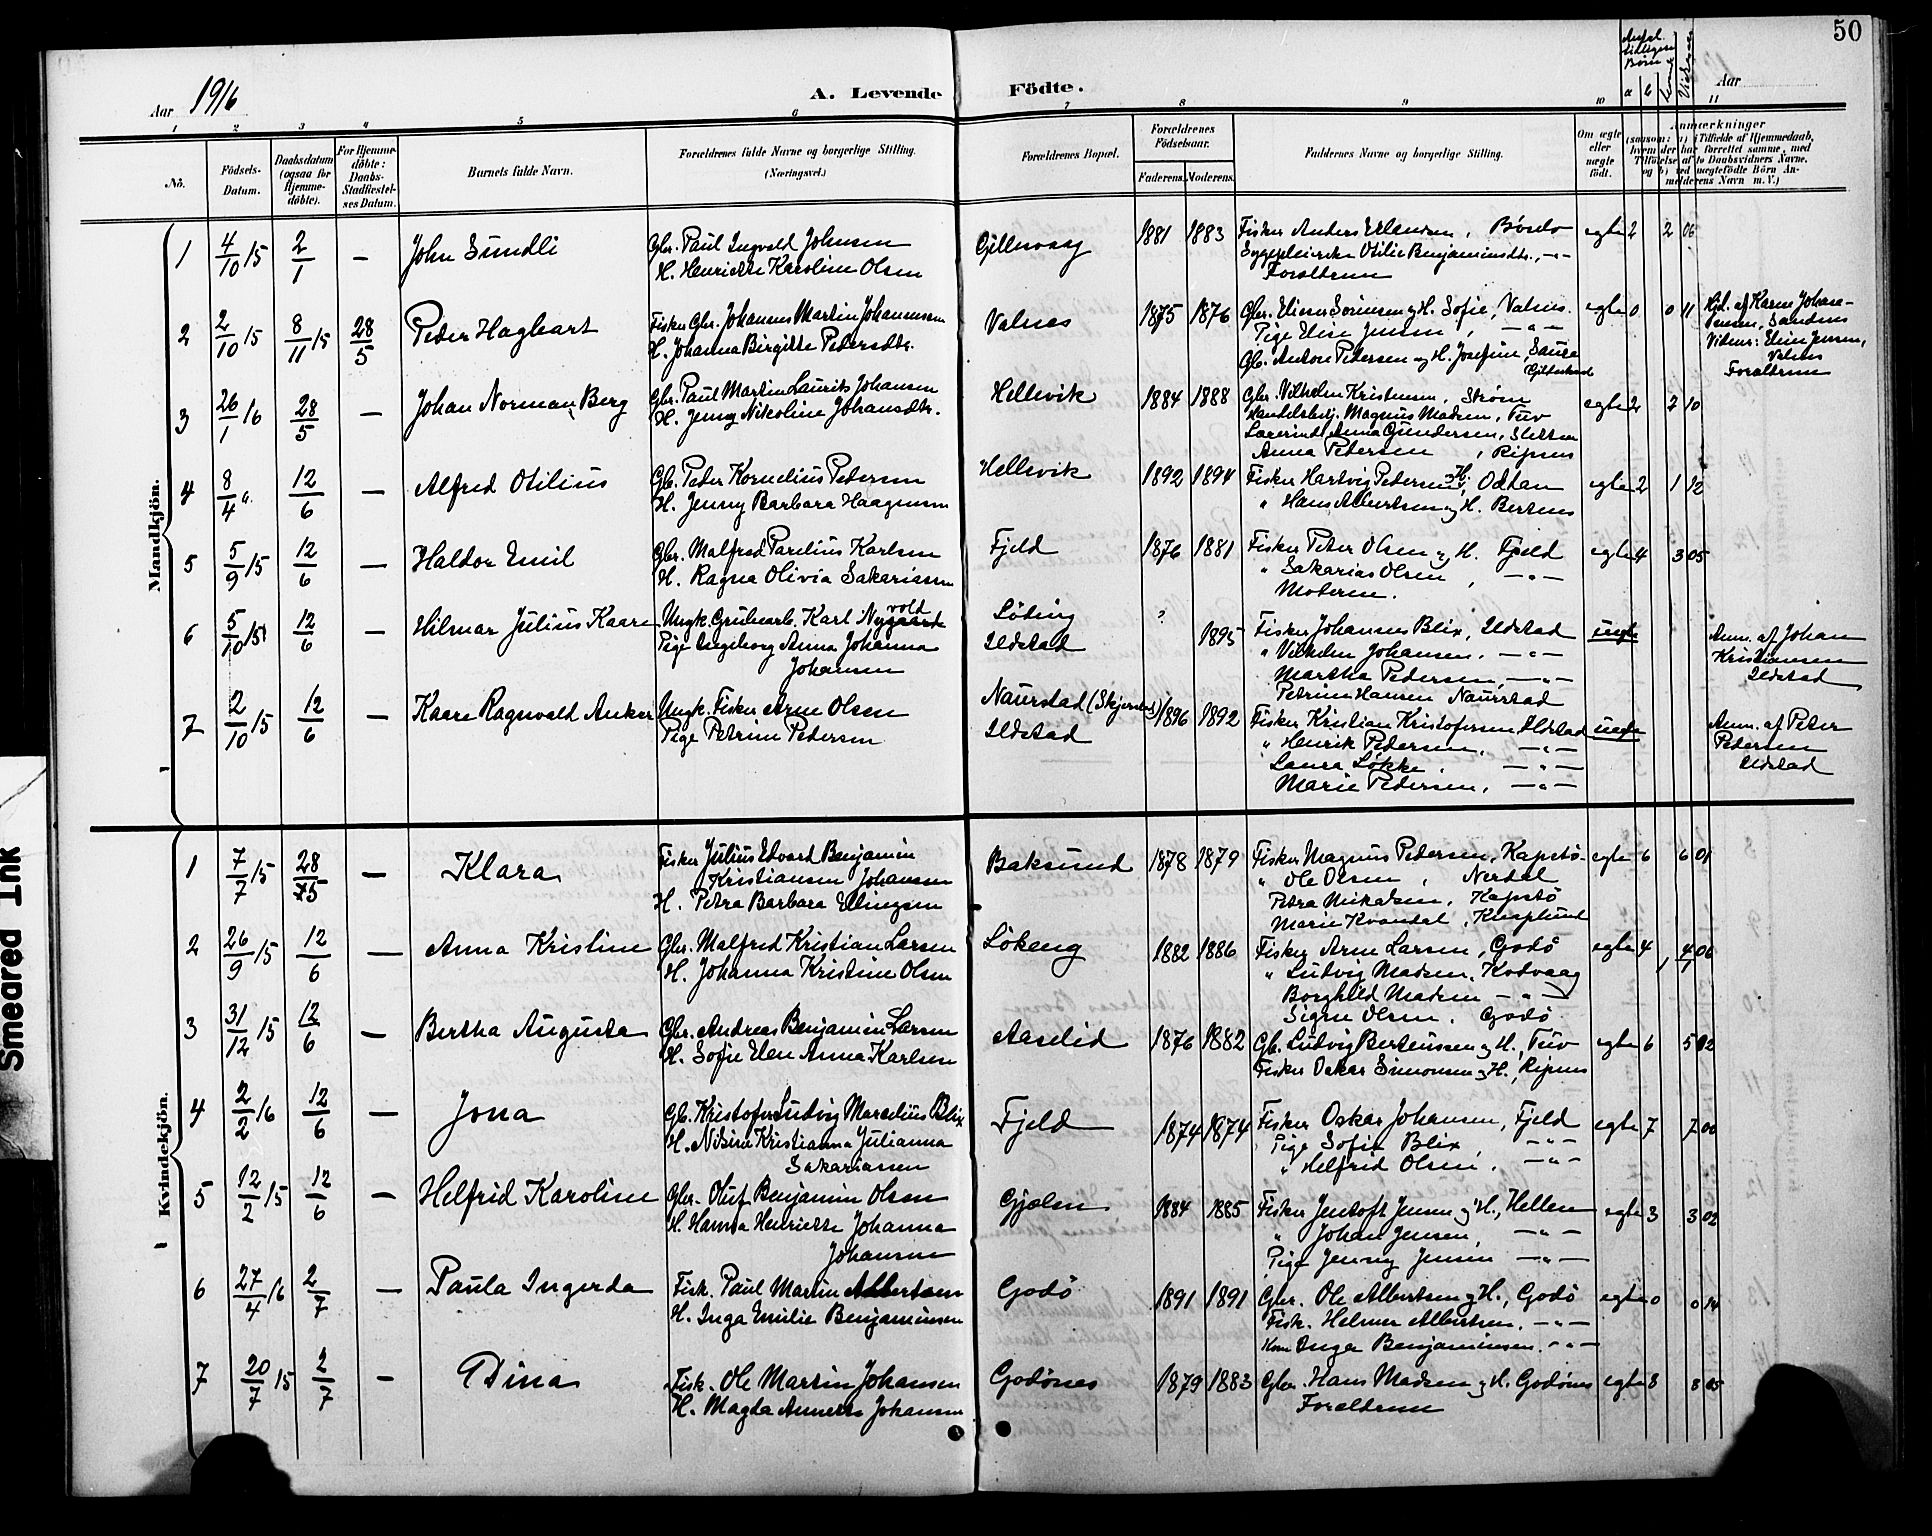 50
Aar 1916
A. Levende Födte.
Aar
Antal tidligere Børn
a b
1 2 3 4 5 6 7 8 9 10 11
Nô.
Födsels-Datum.
Daabsdatum (ogsaa for Hjemme-döbte).
For Hjemme-döbte: Daabs-Stadfæstel-ses Datum.
Barnets fulde Navn.
Forældrenes fulde Navne og borgerlige Stilling.
(Næringsvei.)
Forældrenes Bopæl.
Forældrenes Födselsaar.
Faderens. Moderens.
Faddernes Navne og borgerlige Stilling.
Om ægte eller uægte födt.
Anmærkninger
(saasom: a) i Tilfælde af Hjemmedaab, hvem der har forrettet samme, med Tilföielse af to Daabsvidners Navne. og b) ved uægtefödte Börn An-melderens Navn m. V.)
Mandkjön.
1 4/10 15 2/1 — John Sundli
Gbr. Paul Ingvald Johnsen
H. Henriette Karoline Olsen
Gillesvaag 1881 1883
Fisker Anders Erlandsen,
Sygepleierske Otilie Benjaminsdtr., -"-
Forældrene
egte 2 2 06
2 2/10 15 8/11 15 28/5 Peder Hagbart
Fisker Gbr. Johannes Martin Johannessen
H. Johanna Birgitte Pedersdtr.
Valnes 1875 1876
Gbr. Elieser Sørensen og H. Sofie, Valnes.
Pige Elise Jensen, -"-
Gb. Anton Petersen og H. Josefine,
egte 0 0 11
Hjd. af Karen Johan-
Vidner: Elise Jensen,
Valnes
Forældrene
3 26/1 16 28/5 — Johan Norman Berg
Gbr. Paul Martin Laurits Johansen
H. Jenny Nikoline Johansdtr.
Hellevik 1884 1888
Gbr. Vilhelm Kristensen, Strøm
Handelsbetj. Magnus Madsen, Tuv
Lærerinde Anna Gundersen, Sletten
Anna Petersen, Ripnes
egte 2 2 10
4 8/4 12/6 — Alfred Otilius
Gb. Peder Kornelius Pedersen
H. Jenny Barbara Haagensen
Hellevik 1892 1894
Fisker Hartvig Petersen og H., Oddan
" Hans Albertsen og H. Bertnes
egte 2 1 12
5 5/9 15 12/6 — Haldor Emil
Gbr. Malfred Parelius Karlsen
H. Ragna Olivia Sakariassen
Fjeld 1876 1881
Fisker Peter Olsen og H. Fjeld
" Sakarias Olsen, -"-
Moderen.
egte 4 3 05
6 5/10 15 12/6 — Hilmar Julius Kaare
Ungk. Grubearb. Karl Nygaard vold
Pige Ingeborg Anna Johanna
Johansen
Løding ?
Ildstad 1895
Fisker Johannes Blix, Ildstad
" Vilhelm Johansen, -"-
Martha Pedersen, -"-
Petrine Hansen Naurstad
uegte
Anm. af Johan
Kristiansen
Ildstad
7 2/10 15 12/6 — Kaare Ragnvald Anker
Ungk. Fisker Arne Olsen
Pige Petrine Pedersen
Naurstad (Skjerstad) 1896 1892
Ildstad
Fisker Kristian Kristofersen Ildstad
" Henrik Pedersen, -"-
Laura Løkke, -"-
Marie Pedersen, -"-
uegte
Anm. af Peter
Pedersen
Ildstad
Kvindekjön.
1 7/7 15 28/5 — Klara
Fisker Julius Edvard Benjamin
Kristiansen Johansen
H. Petra Barbara Ellingsen
Baksund 1878 1879
Fisker Magnus Pedersen, Kapstø
" Ole Olsen, Nerdal
Petra Mikalsen, Kapstø
Marie Kvandal,
egte 6 6 01
2 26/9 15 12/6 — Anna Kristine
Gbr. Malfred Kristian Larsen
H. Johanna Kristine Olsen
Løkeng 1882 1886
Fisker Arne Larsen, Godø
" Ludvig Madsen, Kodvaag
Borghild Madsen -"-
Signe Olsen, Godø
egte 4 1 4 06
3 31/12 15 12/6 — Bertha Augusta
Gbr. Andreas Benjamin Larsen
H. Sofie Elen Anna Karlsen
Aaselid 1876 1882
Gb. Ludvig Berteussen og H., Tuv
Fisker Oskar Simonsen og H., Ripnes
egte 6 5 02
4 2/2 16 12/6 — Jona
Gb. Kristofer Ludvig Marselius Blix
H. Nisine Kristianna Julianna
Sakariassen
Fjeld 1874 1874
Fisker Oskar Johansen, Fjeld
Pige Sofie Blix, -"-
" Helfrid Olsen, -"-
egte 7 7 00
5 12/2 15 12/6 — Helfrid Karoline
Gbr. Oluf Benjamin Olsen
H. Hanna Henriette Johanna
Johansen
Gjælen 1884 1885
Fisker Jentoft Jensen og H., Hellen
" Johan Jensen, -"-
Pige Jenny Jensen -"-
egte 3 3 02
6 27/4 16 2/7 — Paula Ingerda
Fisk. Paul Martin Albertsen
H. Inga Emilie Benjaminsen
Godø 1891 1891
Gbr. Ole Albertsen og H., Godø
Fisk. Helmer Albertsen, -"-
Inga Benjaminsen, -"-
egte 0 0 14
7 20/7 15 2/7 — Dina
Fisk. Ole Martin Johansen
H. Magda Annette Johansen
Godønes 1879 1883
Gbr. Hans Madsen og H. Godønes
Forældrene
egte 8 8 05
Smeared Ink